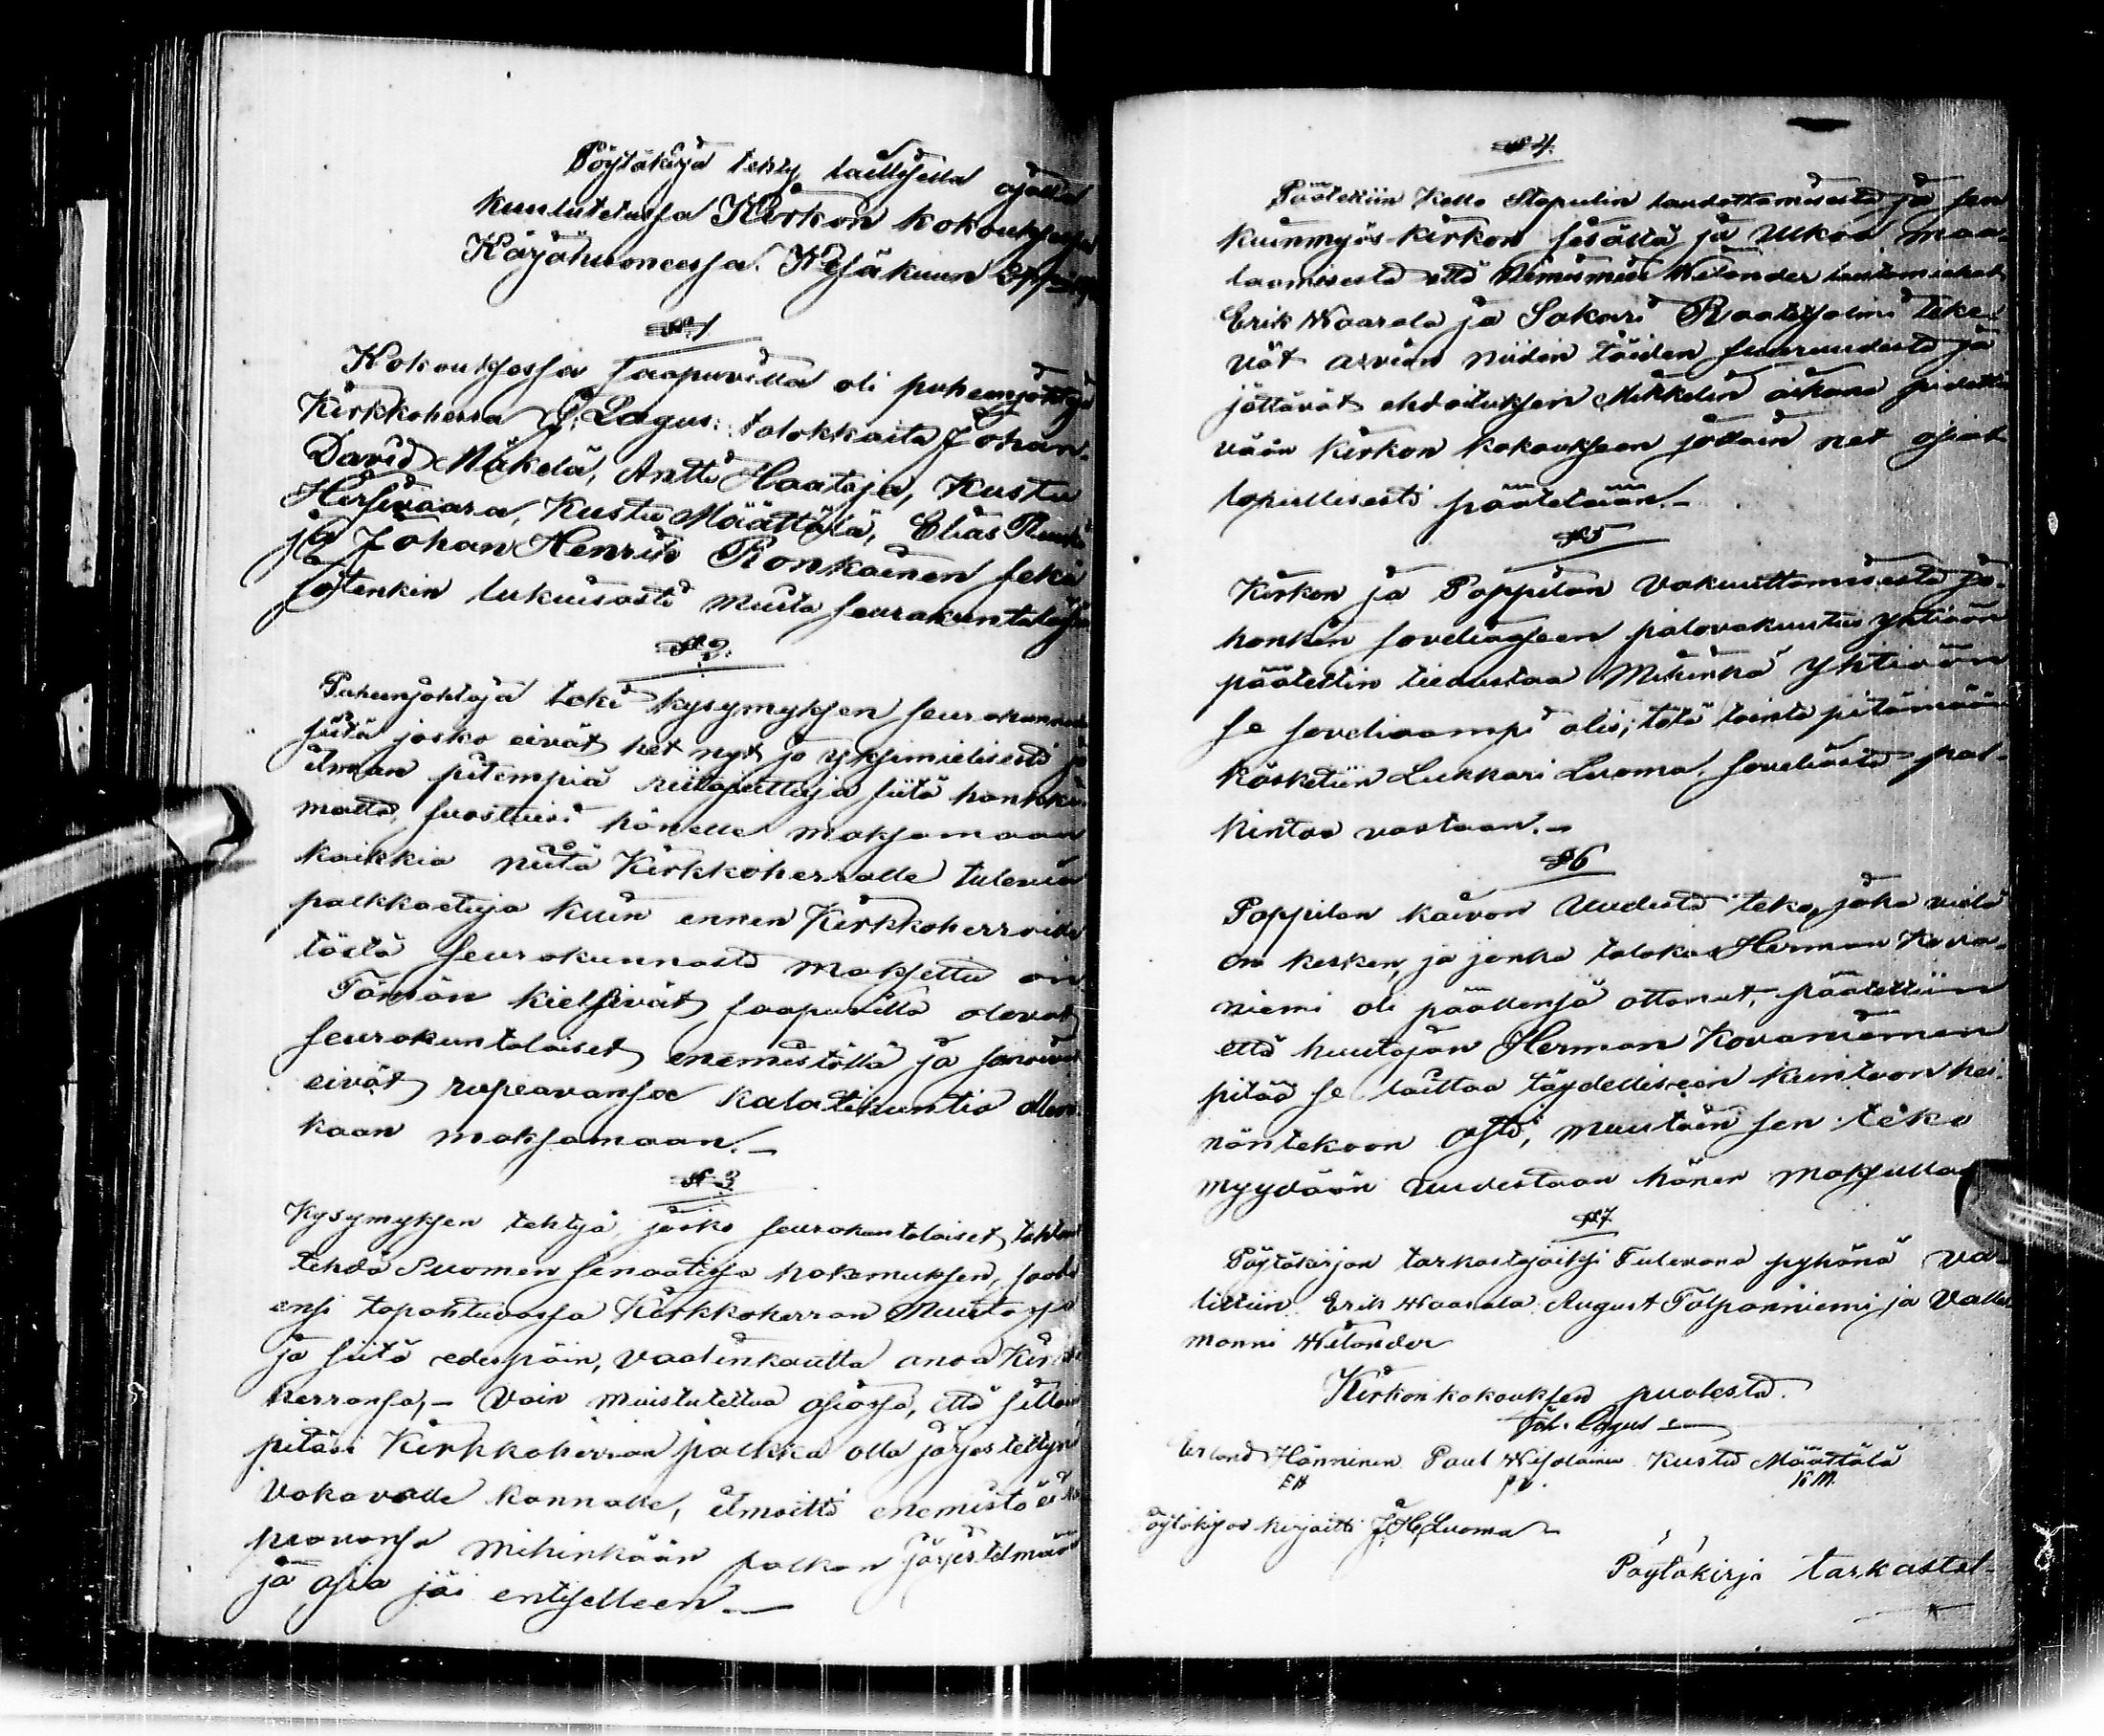 Pöytäkirja tehty laillisella ajalla
kuulutetussa Kirkon kokouksessa
Käräjähuoneessa. Kesäkuun
№ 1
Kokouksessa saapuvilla oli puheenjohtaja
Kirkkoherra J. Lagus: talokkaita Johan
David Mäkelä, Antti Haataja, Kustu
Hirsivaara, Kustu Määttälä, Elias
ja Johan Henrik Ronkainen sekä
jotenkin lukuisasti muita seurakuntalaisia
№ 2.
Puheenjohtaja teki kysymyksen seurakunnalle
siitä josko eivät het nyt jo yksimielisesti ja
ilman pitempiä riitajuttuja siitä hankki-
matta, suostuisi hänelle maksamaan
kaikkia niitä Kirkkoherralle tulevia
palkkaetuja kuin ennen Kirkkoherroille
tästä seurakunnasta maksettu on
Tämän kielsivät saapuvilla olevat
seurakuntalaiset enemistöllä ja sanoivat
eivät rupeavansa kalatihuntia ollen-
kaan maksamaan.-
№ 3
Kysymyksen tehtyä, josko seurakuntalaiset tahtovat
tehdä Suomen senaatissa hakemuksen, saada
ensi tapahtuvassa Kirkkoherran Muutossa
ja siitä edespäin, vaalinkautta ansa Kirkko
herransa,- Vain muistutettua asiassa, että silloin
pitäisi Kirkkoherran palkka olla järjestettynä
Vakavalle kannalle, ilmoitti enemistö ei
peavansa mihinkään palkan järjestelmään
ja asia jäi entiselleen.-
№ 4.
Päätettiin Kello Stapulin laudottamisesta ja sen
kuinmyös kirkon sisältä ja Ulkoa maa-
laamisesta että Nimismies Welander lautamiehet
Erik Waarala ja Sakari Raatesalmi teke-
vät arvion niiden töiden suuruudesta ja
jättävät ehdoituksen Mikkelin aikana pidettä
vään kirkon kokoukseen jolloin net asiat
lopullisesti päätetään.-
№ 5
Kirkon ja Pappilan Vakuuttamisesta jo-
honkin soveliaaseen palovakuutus yhtiöön
päätettiin tiedustaa Mihinkä yhtiöön
se soveliaampi olisi; tätä tointa pitämään
käskettiin Lukkari Luoma, soveliasta pal-
kintoa vastaan.-
№ 6
Pappilan kaivon Uudesta teko, joka vielä
on kesken, ja jonka talokas Herman Kova-
niemi oli päällensä ottanut, päätettiin
että huutajan Herman Kovaniemen
pitää se laittaa täydelliseen kuntoon hei-
näntekoon asti, muutoin sen teko
myydään uudestaan hänen maksullaan
№ 7
Pöytäkirjan tarkastajaiksi Tulevana pyhänä va-
littiin Erik Waarala August Tolpanniemi ja Valles-
manni Welander
Kirkonkokouksen puolesta.
Joh. Lagus
Erland Hänninen Paul Kustu Määttälä
EH PV. KM.
Pöytäkirjas kirjoitti J. H. Luoma
Pöytäkirja tarkastet-